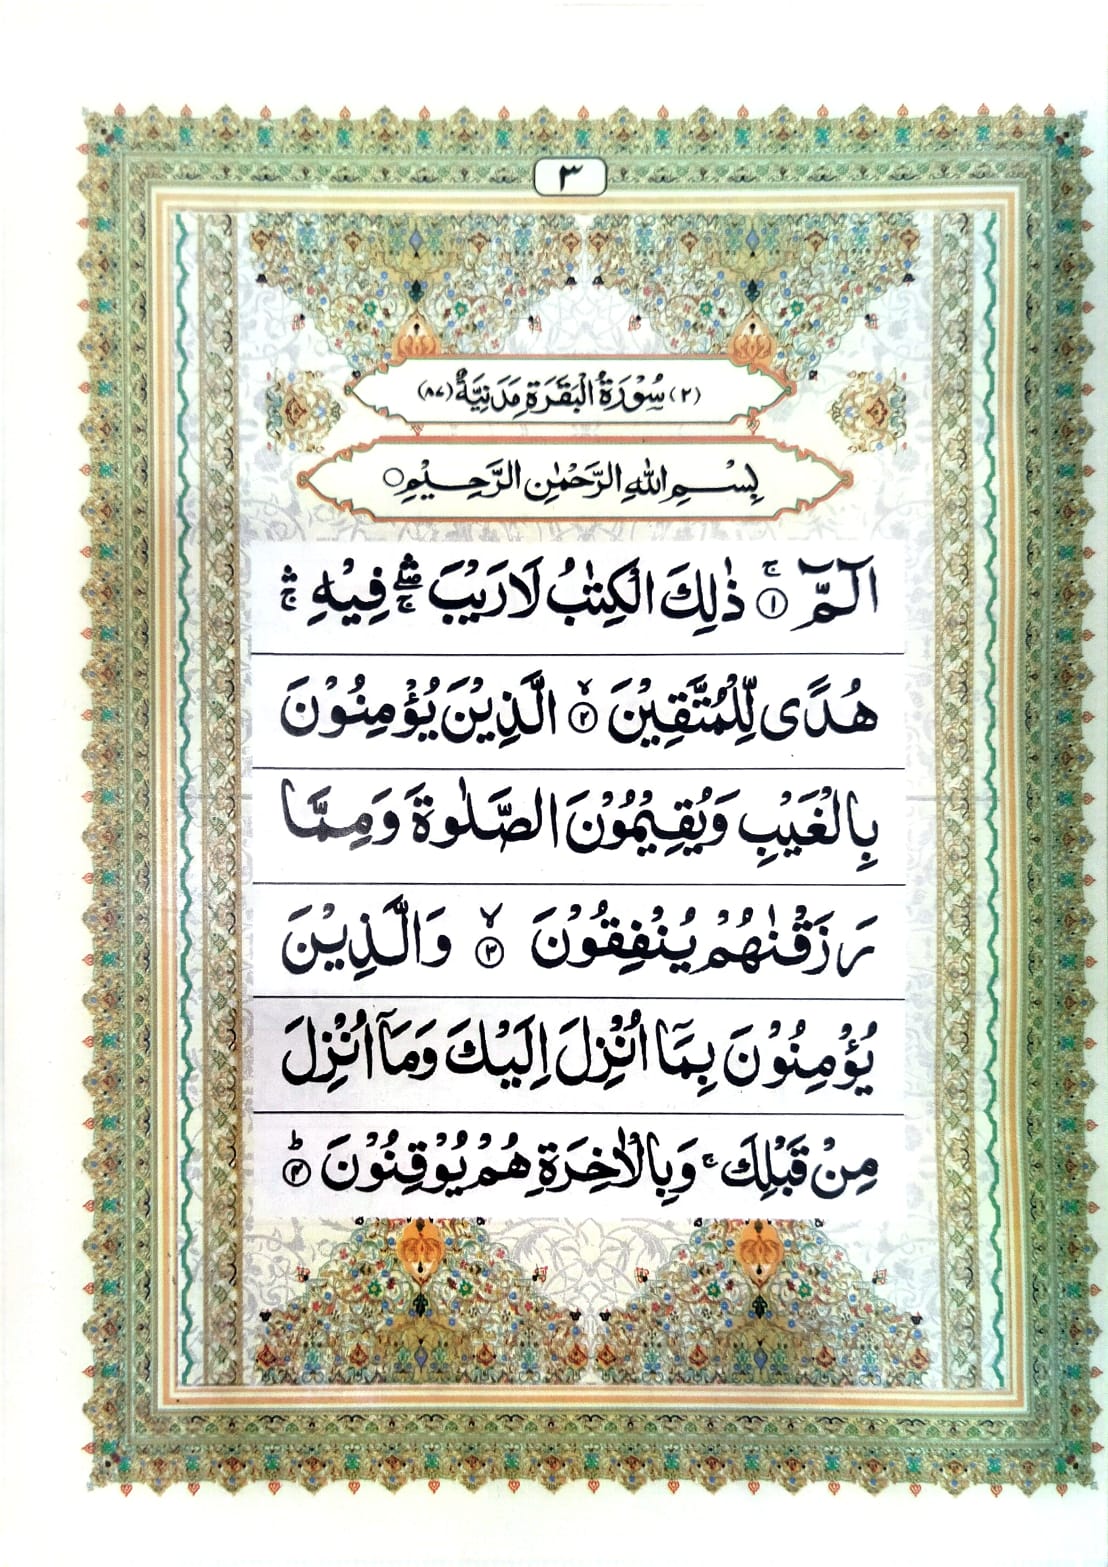 ٣
(٢) سُوْرَةُ الْبَقَرَةِ مَدَنِيَّةٌ (٨٧)
بِسْمِ اللّٰهِ الرَّحْمٰنِ الرَّحِيْمِ○
الٓمّٓ ۚ﴿١﴾ ذٰلِكَ الْكِتٰبُ لَا رَيْبَ ۛۖۚ فِيْهِ ۛۚ
هُدًى لِّلْمُتَّقِيْنَ ۙ﴿٢﴾ الَّذِيْنَ يُؤْمِنُوْنَ
بِالْغَيْبِ وَيُقِيْمُوْنَ الصَّلٰوةَ وَمِمَّا
رَزَقْنٰهُمْ يُنْفِقُوْنَ ۙ﴿٣﴾ وَالَّذِيْنَ
يُؤْمِنُوْنَ بِمَآ اُنْزِلَ اِلَيْكَ وَمَآ اُنْزِلَ
مِنْ قَبْلِكَ ۚ وَبِالْاٰخِرَةِ هُمْ يُوْقِنُوْنَ ؕ﴿٤﴾